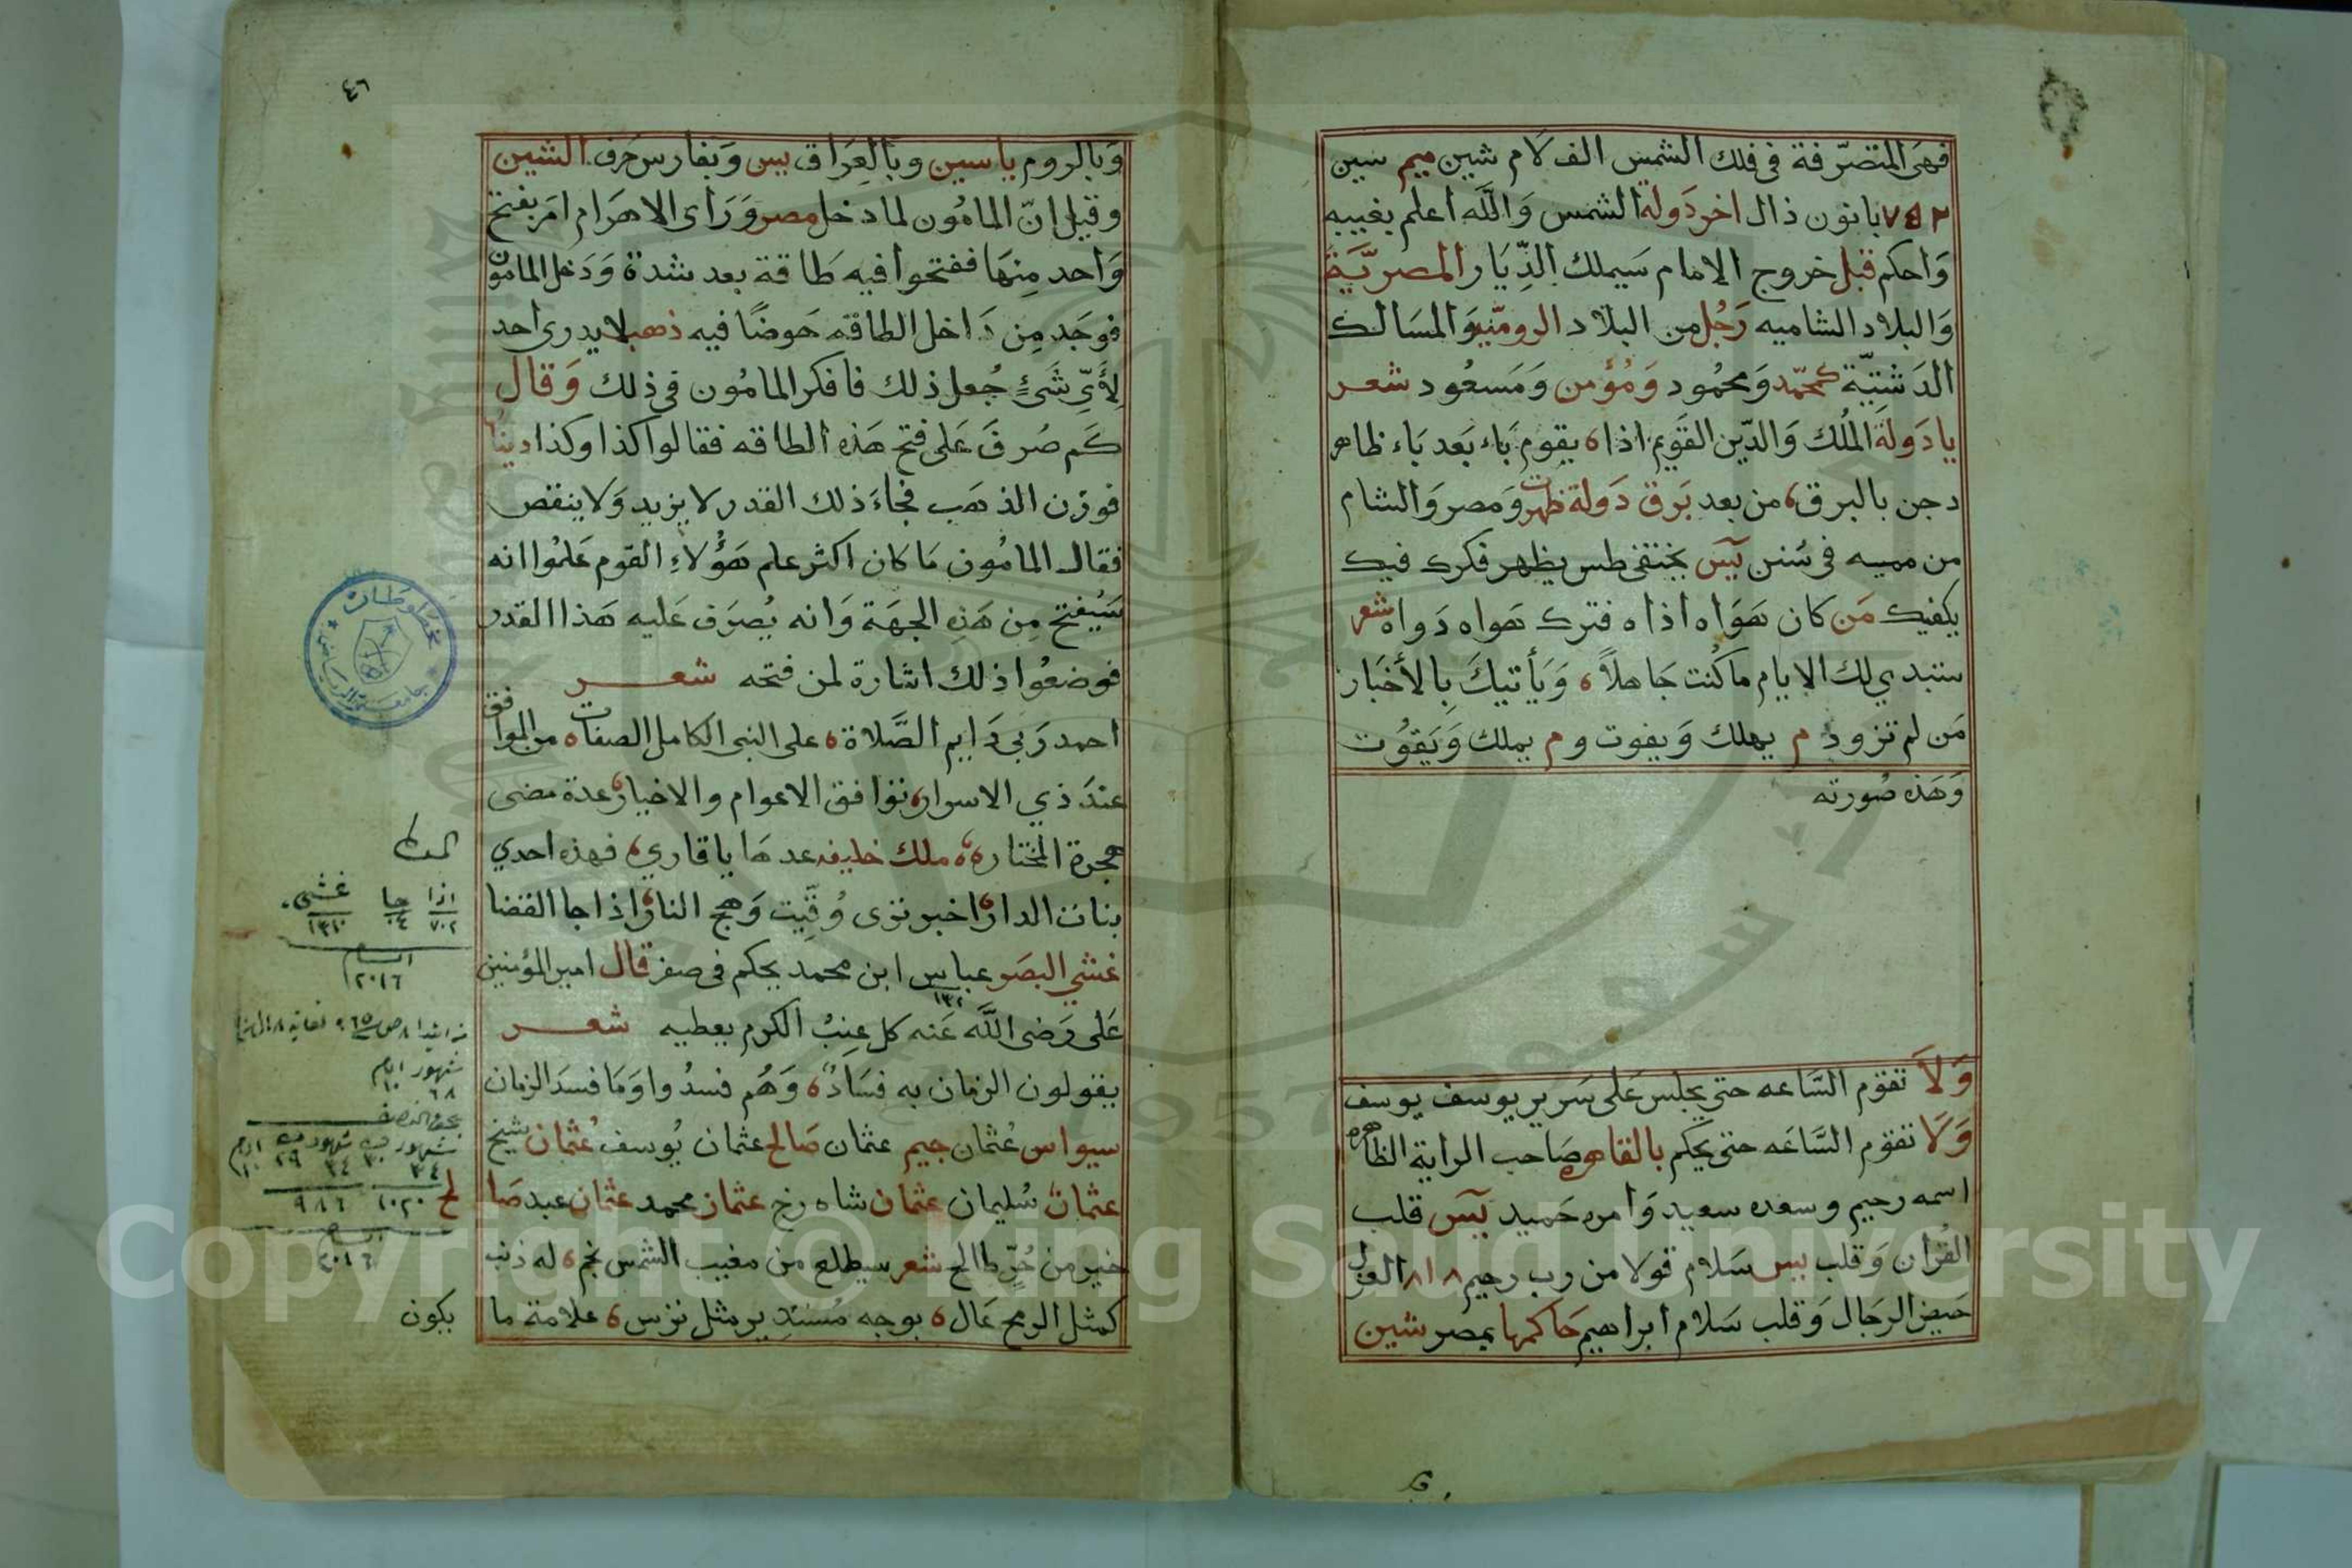 فهى المتصرفة فى فلك الشمس الف لام شين ميم سين
بانون ذال اخر دولة الشمس وَاللّه اعلم بغيبه
وَاحكم قبل خروج الامام سَيملك الدِّيَار المصريَّة
وَالبلاد الشاميه رَجُل من البلاد الروميّه وَالمسَالك
الدَشتِيّة كمحمّد وَمحمُود وَمُؤمن وَمَسعُود شعر
يا دَولَة المُلك وَالدّين القَويم اذا ه يقوم بَاء بَعد بَاء ظاهر
دجن بالبرق ه من بعد بَرق دَولة ظهرت وَمصر وَالشام
من مميه فى سُنن يٓس يختفى طس يظهر فكرك فيك
يكفيك مَن كان هَوَاه اذاه فترك هَواه دَواه شعر
ستبدي لك الايام ما كُنت جَاهلاً ه وَيَأتيكَ بِالأخبَار
مَن لم تزود م يهلك وَيفوت و م يملك وَيَقوُت
وَهَذه صُورته
وَلاَ تقوم السَّاعه حتى يجلس عَلى سَرير يوسف يوسف
وَلاَ تقوم السَّاعَه حتى يحكم بالقاهره صَاحب الراية الظاهره
اسمه رحيم وسعده سعيد وَامره حَميد يٓس قلب
القُران وَقلب يس سَلام قولا من رب رحيم
حيض الرجَال وَقلب سَلام ابراهيم حَاكمها بمصر شين
٤٦
وَبالروم ياسين وبالعِرَاق يس وَبفارس حَرف الشين
وقيل انّ المامُون لما دخل مصر وَرَاى الاهرَام امَر بفتح
وَاحد مِنهَا ففتحوا فيه طَاقة بعد شدة وَدَخل المامون
فوجَد مِن دَاخل الطاقه حَوضًا فيه ذهب لا يدرى احد
لِأَيِّ شَئٍ جُعل ذلك فافكر المامُون فى ذلك وَقال
كَم صُرفَ عَلى فتح هَذه الطاقه فقالوا كذا وكذا دينًا
فوزن الذهَب فجاءَ ذلك القدر لا يزيد وَلا ينقص
فقال المامُون مَا كان اكثر علم هَؤُلاءِ القوم عَلمُوا انه
سَيُفتح مِن هَذِه الجهَة وَانه يُصرَف عَليه هَذا القدر
فوضعُوا ذلك اشارة لمن فتحه شعر
احمد رَبي دَايم الصَّلاة ه على النبى الكامل الصفات ه من الموافق
عندَ ذي الاسرار ه توافق الاعوام والاخيار ه عدة مضى
هجرة المختاره ه ملك خليفه عدهَا ياقاري ه فهذه احدي
بنات الدار ه اخبر تزى وُقِّيت وَهج النار ه اذا جا القضا
غشي البصَر عباس ابن محمد يحكم فى صفر قال امير المؤمنين
عَلى رَضى اللَّه عَنه كل عِنبُ الكرم يعطيه شعر
يقولون الزمان به فسَادُ ه وَهُم فسدُوا وَمَا فسدَ الزمان
سيواس عُثمان جيم عثمان صَالح عثمان يُوسف عُثمان شيخ
عثمان سُليمان عثمان شاه رخ عثمان محمد عثمان عبد صَا
خير من حُرٍّ طالح شعر سيطلع من مغيب الشمس نجم ه له ذنب
كمثل الرمح عَال ه بوجه مُستدير مثل ترس ه علامة ما
يكون
اذا جا غشى
٧٠٢ ٤ ١٣١٠
٢٠١٦
شهور ايام
١٠٢٠ ٩٨٦
٢٠١٦
Copyright © King Saud University
1957